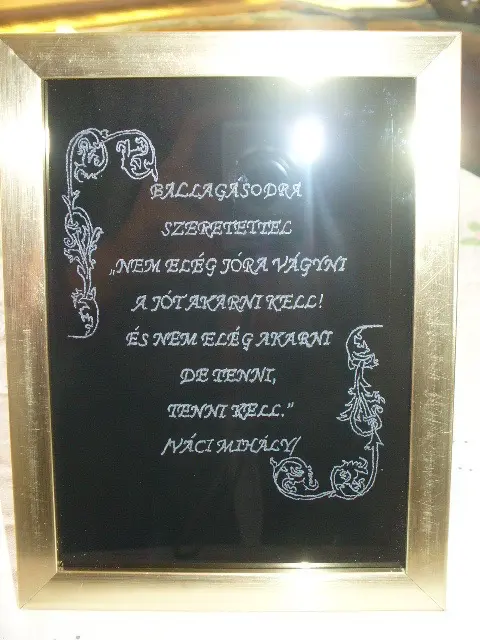 BALLAGÁSODRA
SZERETETTEL
„NEM ELÉG JÓRA VÁGYNI
A JÓT AKARNI KELL!
ÉS NEM ELÉG AKARNI
DE TENNI,
TENNI KELL.”
/VÁCI MIHÁLY/